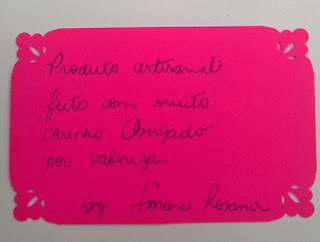 Produto artesanal
feito com muito
carinho Obrigado
por valorizar
by Rosana